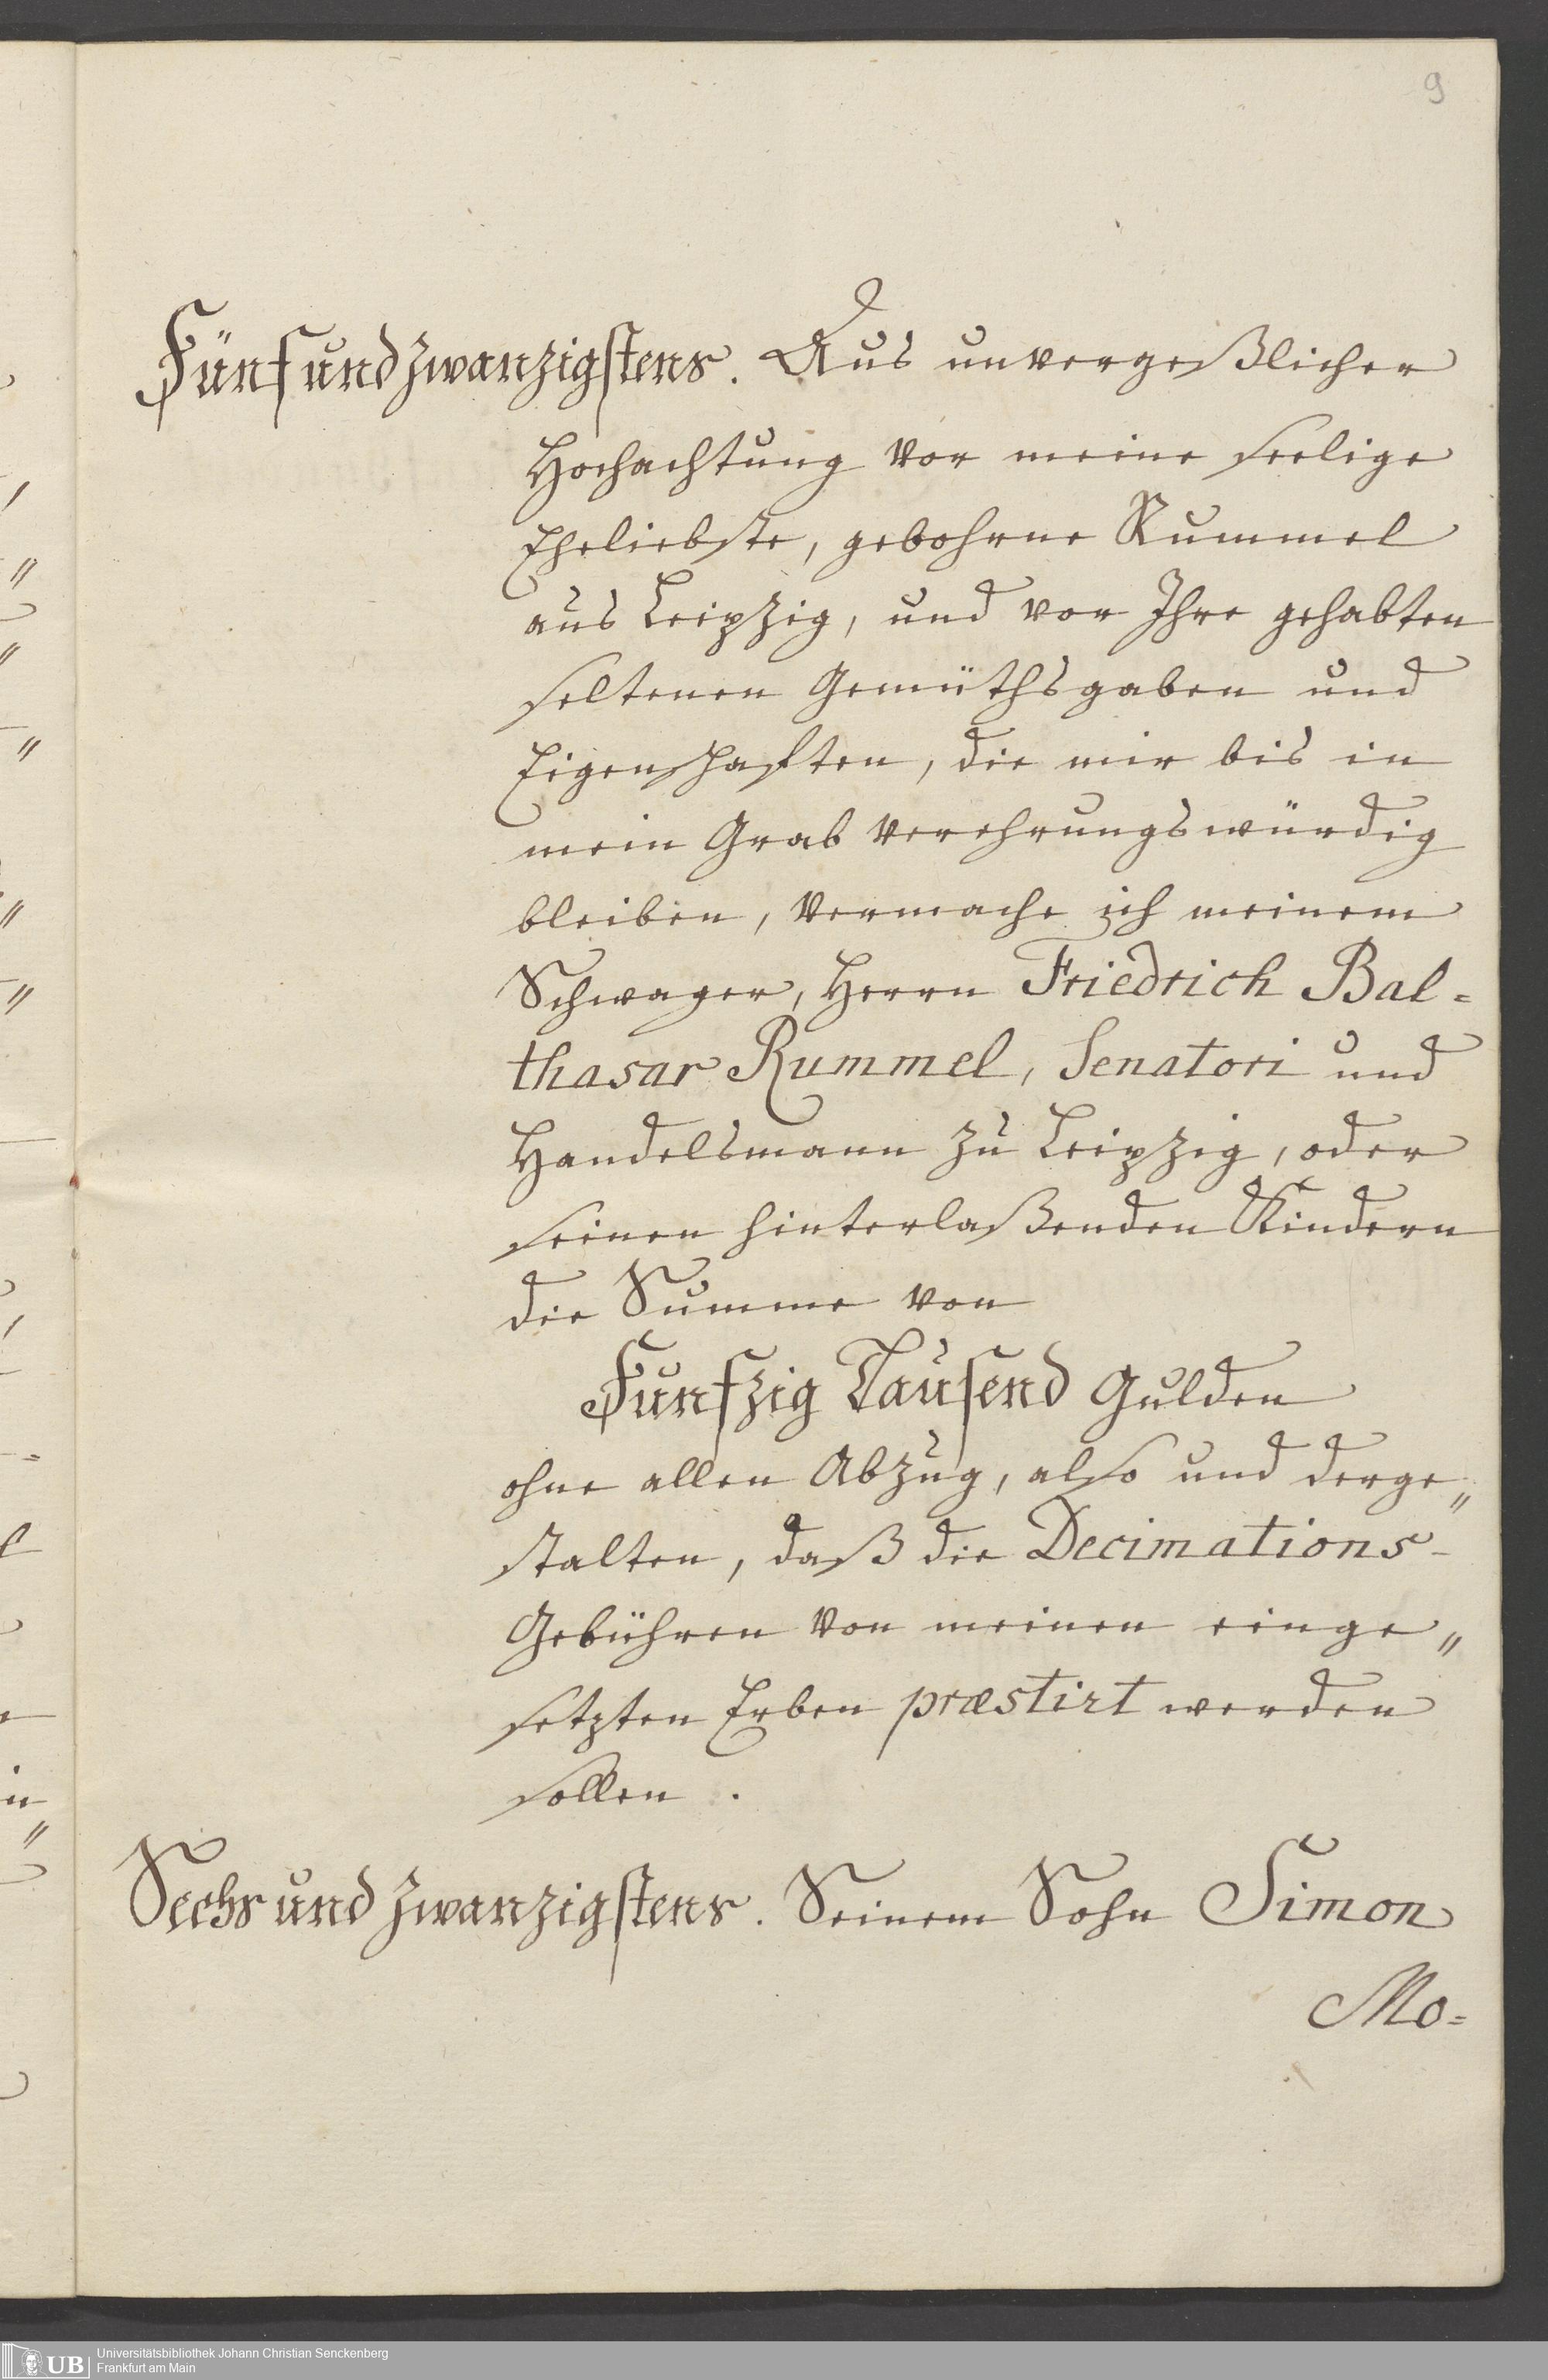 9
Fünfundzwanzigstens. Aus unvergeßlicher
Hochachtung vor meine seelige
Eheliebste, gebohrne Rummel
aus Leipzig, und vor Ihre gehabten
seltenen Gemüthsgaben und
Eigenschaften, die mir bis in
mein Grab verehrungswürdig
bleiben, vermache ich meinem
Schwager, Herrn Friedrich Bal=
thasar Rummel, Senatori und
Handelsmann zu Leipzig, oder
seinen hinterlaßenden Kindern
die Summe von
Funfzig Tausend Gulden
ohne allen Abzug, also und derge„
stalten, daß die Decimations-
Gebühren von meinen einge„
setzten Erben præstirt werden
sollen.
Sechsundzwanzigstens. Seinem Sohn Simon
Mo=
UB Universitätsbibliothek Johann Christian Senckenberg
Frankfurt am Main